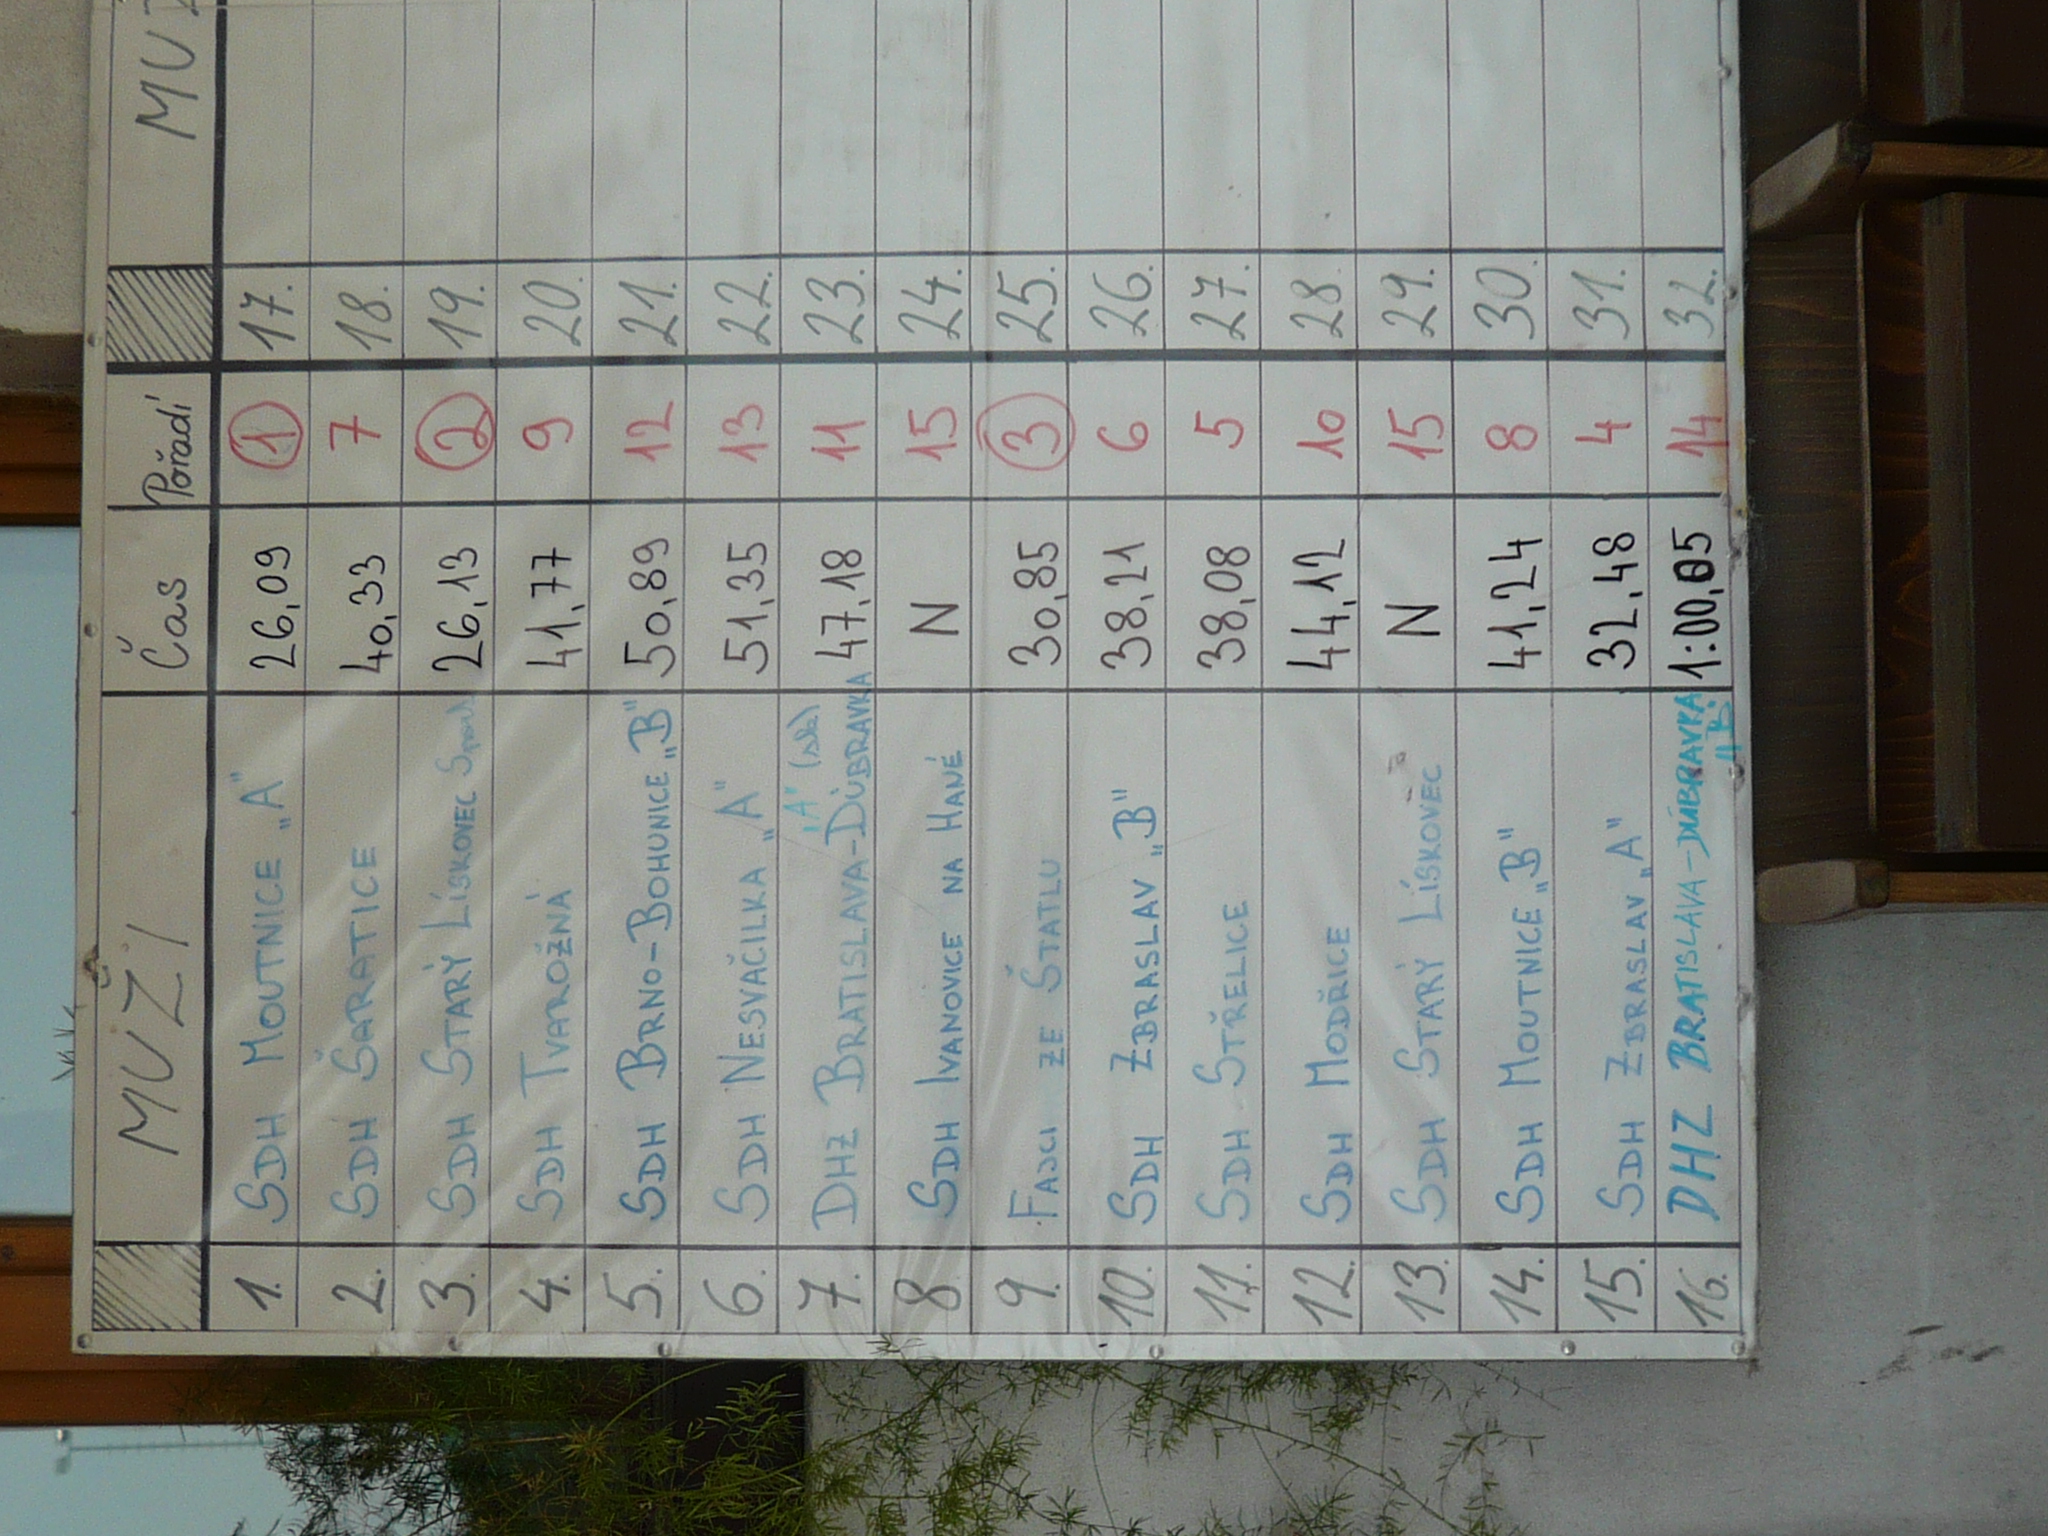 MUŽI Čas Pořadí MUŽ
1. SDH MOUTNICE „A" 26,09 1 17.
2. SDH ŠARATICE 40,33 7 18.
3. SDH STARÝ LÍSKOVEC 26,13 2 19.
4. SDH TVAROŽNÁ 41,77 9 20.
5. SDH BRNO-BOHUNICE „B" 50,89 12 21.
6. SDH NESVAČILKA „A" 51,35 13 22.
7. DHZ BRATISLAVA-DÚBRAVKA „A" 47,18 11 23.
8. SDH IVANOVICE NA HANÉ N 15 24.
9. FAJCI ZE ŠTATLU 30,85 3 25.
10. SDH ZBRASLAV „B" 38,21 6 26.
11. SDH STŘELICE 38,08 5 27.
12. SDH MODŘICE 44,12 10 28.
13. SDH STARÝ LÍSKOVEC N 15 29.
14. SDH MOUTNICE „B" 41,24 8 30.
15. SDH ZBRASLAV „A" 32,48 4 31.
16. DHZ BRATISLAVA-DÚBRAVKA „B" 1:00,05 14 32.